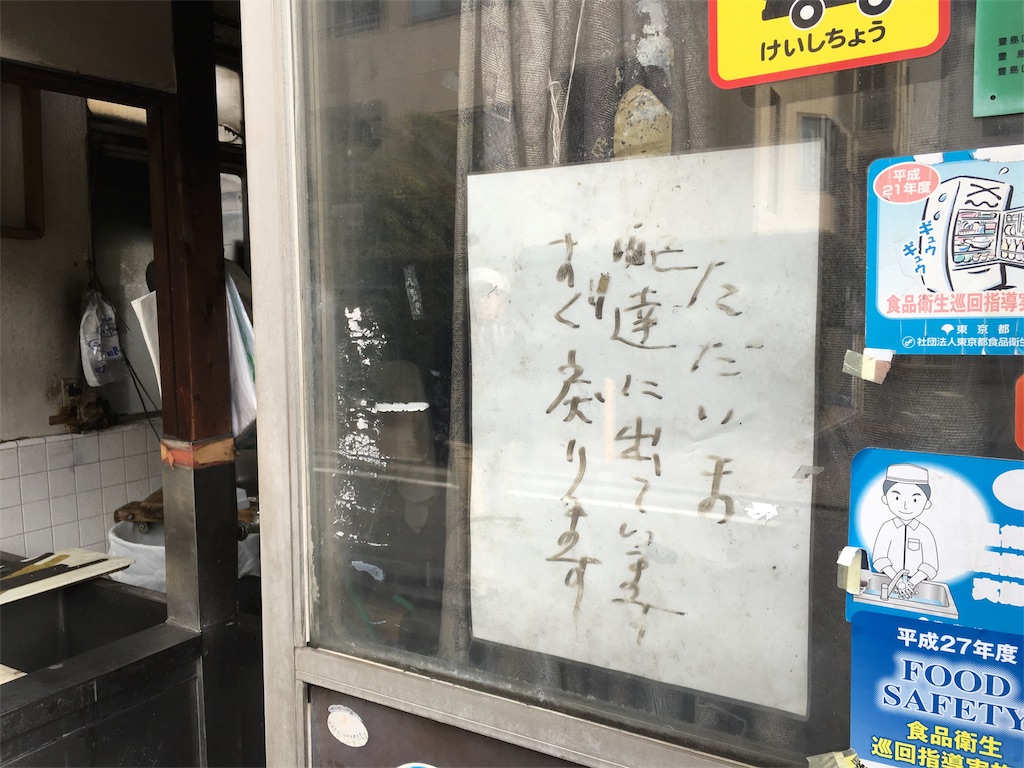 ただいま
配達に出ています
すぐ戻ります
けいしちょう
豊島
豊島
豊島
平成
21年度
ギュウ
ギュウ
食品衛生巡回指導
東京都
社団法人東京都食品衛生
平成27年度
FOOD
SAFETY
食品衛生
巡回指導実施